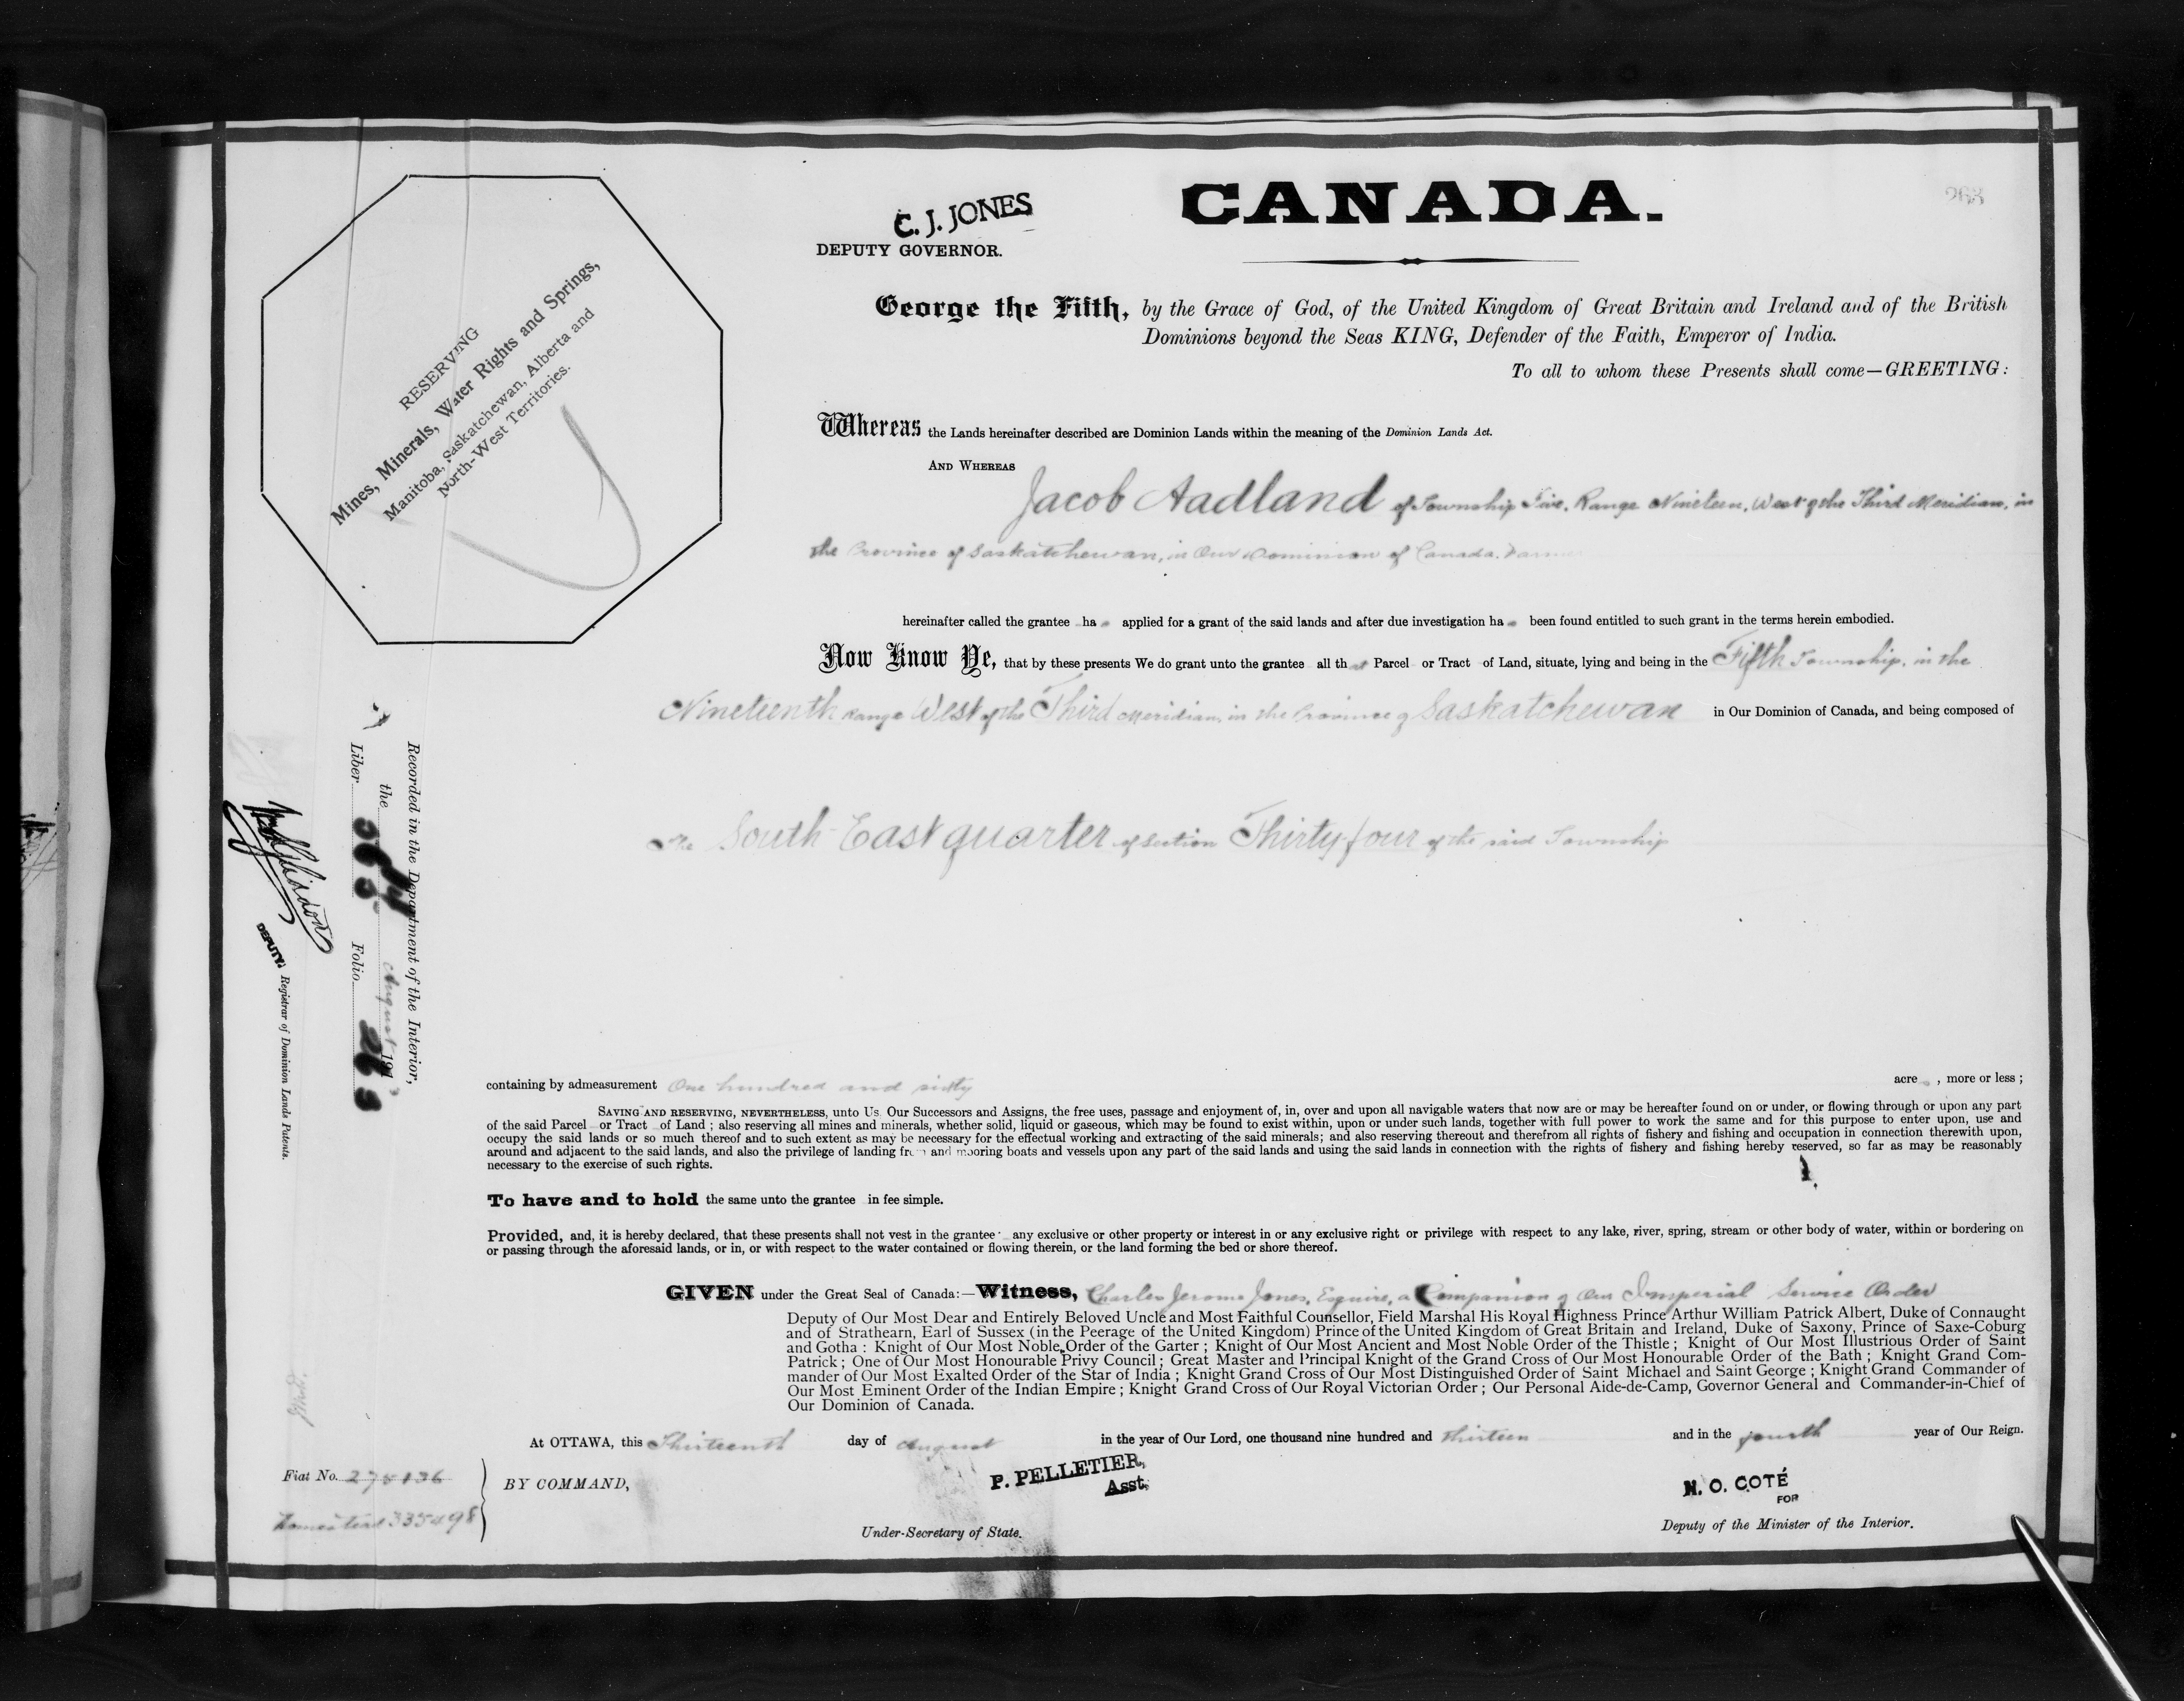 CANADA.
263
C. J. JONES
DEPUTY GOVERNOR.
RESERVING
Mines, Minerals, Water Rights and Springs,
Manitoba, Saskatchewan, Alberta and
North-West Territories.
George the Fifth, by the Grace of God, of the United Kingdom of Great Britain and Ireland and of the British
Dominions beyond the Seas KING, Defender of the Faith, Emperor of India.
To all to whom these Presents shall come—GREETING:
Whereas the Lands hereinafter described are Dominion Lands within the meaning of the Dominion Lands Act.
AND WHEREAS
Jacob Aadland of Township Five, Range Nineteen, West of the Third Meridian, in
the Province of Saskatchewan, in Our Dominion of Canada. Farmer
hereinafter called the grantee ha s applied for a grant of the said lands and after due investigation ha s been found entitled to such grant in the terms herein embodied.
Now Know Ye, that by these presents We do grant unto the grantee all th at Parcel or Tract of Land, situate, lying and being in the Fifth Township, in the
Nineteenth Range West of the Third Meridian, in the Province of Saskatchewan in Our Dominion of Canada, and being composed of
The South East quarter of Section Thirty four of the said Township
containing by admeasurement One hundred and sixty acre s , more or less ;
SAVING AND RESERVING, NEVERTHELESS, unto Us Our Successors and Assigns, the free uses, passage and enjoyment of, in, over and upon all navigable waters that now are or may be hereafter found on or under, or flowing through or upon any part
of the said Parcel or Tract of Land ; also reserving all mines and minerals, whether solid, liquid or gaseous, which may be found to exist within, upon or under such lands, together with full power to work the same and for this purpose to enter upon, use and
occupy the said lands or so much thereof and to such extent as may be necessary for the effectual working and extracting of the said minerals; and also reserving thereout and therefrom all rights of fishery and fishing and occupation in connection therewith upon,
around and adjacent to the said lands, and also the privilege of landing from and mooring boats and vessels upon any part of the said lands and using the said lands in connection with the rights of fishery and fishing hereby reserved, so far as may be reasonably
necessary to the exercise of such rights.
To have and to hold the same unto the grantee in fee simple.
Provided, and, it is hereby declared, that these presents shall not vest in the grantee any exclusive or other property or interest in or any exclusive right or privilege with respect to any lake, river, spring, stream or other body of water, within or bordering on
or passing through the aforesaid lands, or in, or with respect to the water contained or flowing therein, or the land forming the bed or shore thereof.
GIVEN under the Great Seal of Canada:—Witness, Charles Jerome Jones, Esquire, a Companion of Our Imperial Service Order
Deputy of Our Most Dear and Entirely Beloved Uncle and Most Faithful Counsellor, Field Marshal His Royal Highness Prince Arthur William Patrick Albert, Duke of Connaught
and of Strathearn, Earl of Sussex (in the Peerage of the United Kingdom) Prince of the United Kingdom of Great Britain and Ireland, Duke of Saxony, Prince of Saxe-Coburg
and Gotha : Knight of Our Most Noble Order of the Garter ; Knight of Our Most Ancient and Most Noble Order of the Thistle ; Knight of Our Most Illustrious Order of Saint
Patrick ; One of Our Most Honourable Privy Council ; Great Master and Principal Knight of the Grand Cross of Our Most Honourable Order of the Bath ; Knight Grand Com-
mander of Our Most Exalted Order of the Star of India ; Knight Grand Cross of Our Most Distinguished Order of Saint Michael and Saint George ; Knight Grand Commander of
Our Most Eminent Order of the Indian Empire ; Knight Grand Cross of Our Royal Victorian Order ; Our Personal Aide-de-Camp, Governor General and Commander-in-Chief of
Our Dominion of Canada.
At OTTAWA, this Thirteenth day of August in the year of Our Lord, one thousand nine hundred and thirteen and in the fourth year of Our Reign.
Fiat No. 275136
Homestead 335498
BY COMMAND,
P. PELLETIER,
Asst.
Under-Secretary of State.
N. O. COTÉ
FOR
Deputy of the Minister of the Interior.
Recorded in the Department of the Interior,
the August 1913
Liber Folio 263
DEPUTY Registrar of Dominion Lands Patents.